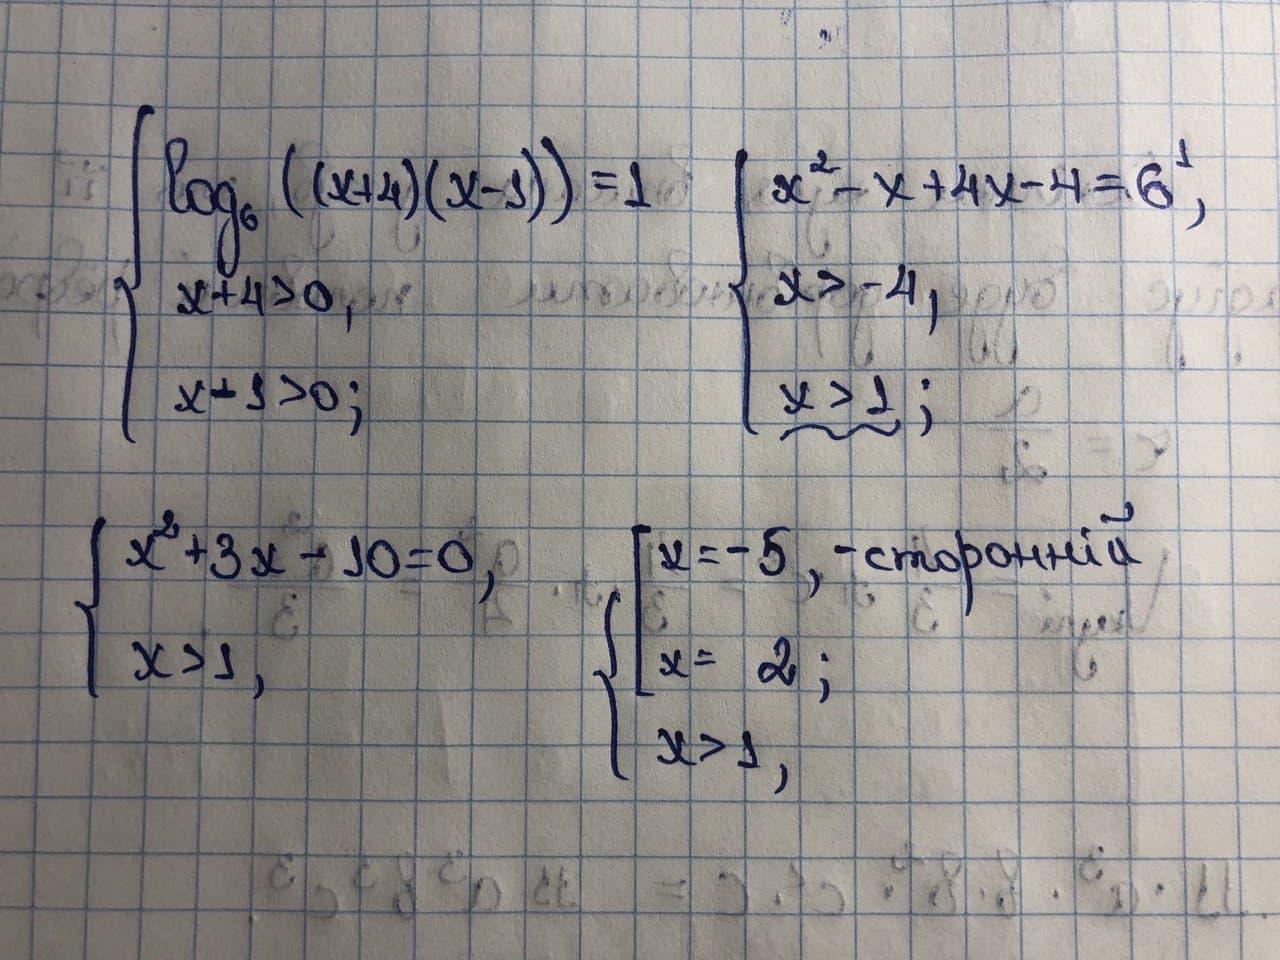 log₆ ((x+4)(x-1)) = 1
x+4>0,
x-1>0;
x² - x + 4x - 4 = 6¹,
x > -4,
x > 1;
x² + 3x - 10 = 0,
x > 1,
x = -5, - сторонній
x = 2;
x > 1,